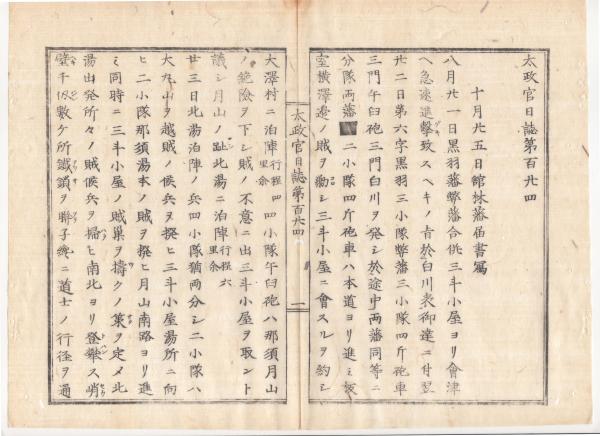 太政官日誌第百廿四
十月廿五日館林藩届書冩
八月廿一日黒羽藩弊藩合併三斗小屋ヨリ會津
ヘ急速進撃致スヘキノ旨於白川表御達ニ付翌
廿二日第六字黒羽三小隊弊藩三小隊四斤砲車
三門午臼砲三門白川ヲ発シ於途中両藩同等ニ
分隊両藩 二小隊四斤砲車ハ本道ヨリ進ミ板
室横澤邊ノ賊ヲ勦シ三斗小屋ニ會スルヲ約シ
太政官日誌第百廿四 一
大澤村ニ泊陣行程四里余四小隊午臼砲ハ那須月山
ノ絶險ヲ下シ賊ノ不意ニ出三斗小屋ヲ取ント
議シ月山ノ趾北湯ニ泊陣行程六里余
廿三日北湯泊陣ノ兵四小隊猶両分シ二小隊ハ
大丸山ヲ越賊ノ候兵ヲ探ヒ三斗小屋湯所ニ向
ヒ二小隊那須湯本ノ賊ヲ探ヒ月山南路ヨリ進
ミ同時ニ三斗小屋ノ賊巣ヲ擣クノ策ヲ定メ北
湯出発所々ノ賊候兵ヲ掃ヒ南北ヨリ登攀ス峭
壁千仭數ケ所鐡鎖ヲ聯子纔ニ道士ノ行径ヲ通